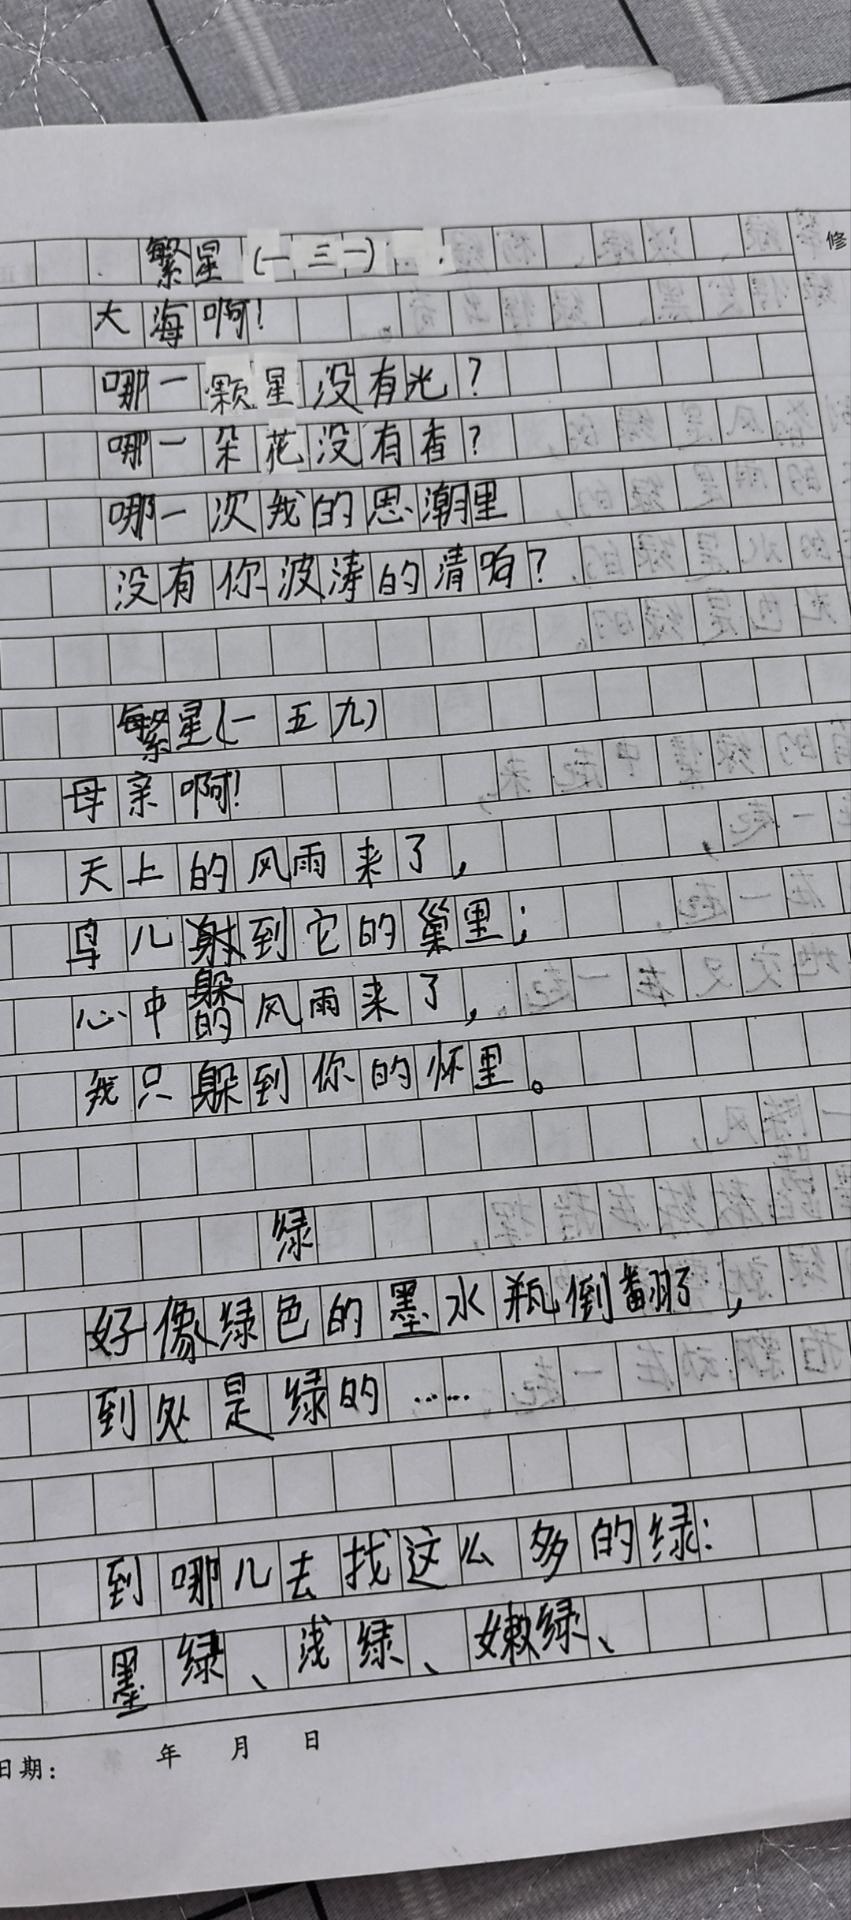 繁星(一三一)
修
大海啊!
哪一颗星没有光?
哪一朵花没有香?
哪一次我的思潮里
没有你波涛的清响?
繁星(一五九)
母亲啊!
天上的风雨来了,
鸟儿躲到它的巢里;
心中的风雨来了,
我只躲到你的怀里。
绿
好像绿色的墨水瓶倒翻了,
到处是绿的……
到哪儿去找这么多的绿:
墨绿、浅绿、嫩绿、
日期: 年 月 日